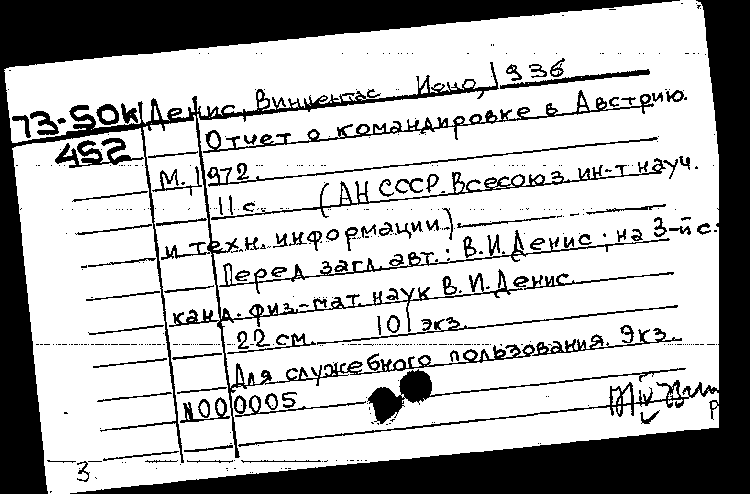 73-50к Денис, Винцентас Ионо, 1936
452 Отчет о командировке в Австрию.
М., 1972.
11 с. (АН СССР. Всесоюз. ин-т науч.
и техн. информации).
Перед загл. авт.: В.И. Денис; на 3-й с.:
канд. физ.-мат. наук В.И. Денис.
22 см. 101 экз.
Для служебного пользования. Экз.
N 000005.
3